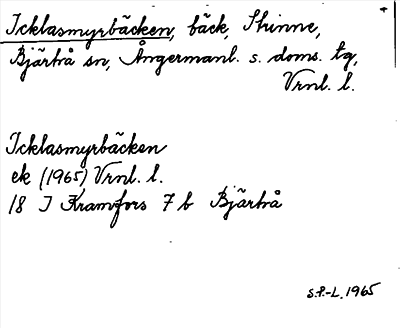 Icklasmyrbäcken, bäck, Skinne,
Bjärtrå sn, Ångermanl. s. doms. tg,
Vrnl. l.
Icklasmyrbäcken
ek (1965) Vrnl. l.
18 I Kramfors 7 b Bjärtrå
S.P.-L. 1965